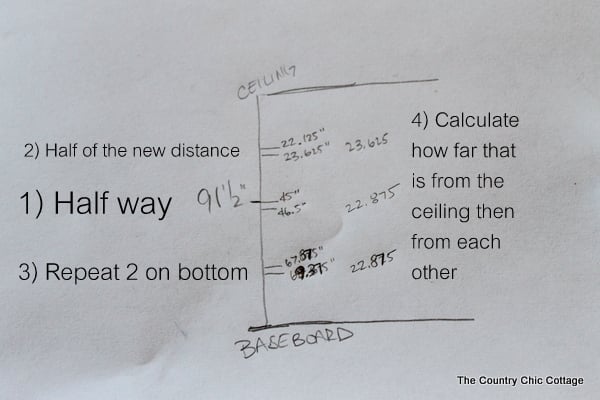 CEILING
2) Half of the new distance
22.125"
23.625" 23.625
1) Half way
91 1/2"
45"
46.5" 22.875
3) Repeat 2 on bottom
67.875"
69.375" 22.875
BASEBOARD
4) Calculate
how far that
is from the
ceiling then
from each
other
The Country Chic Cottage